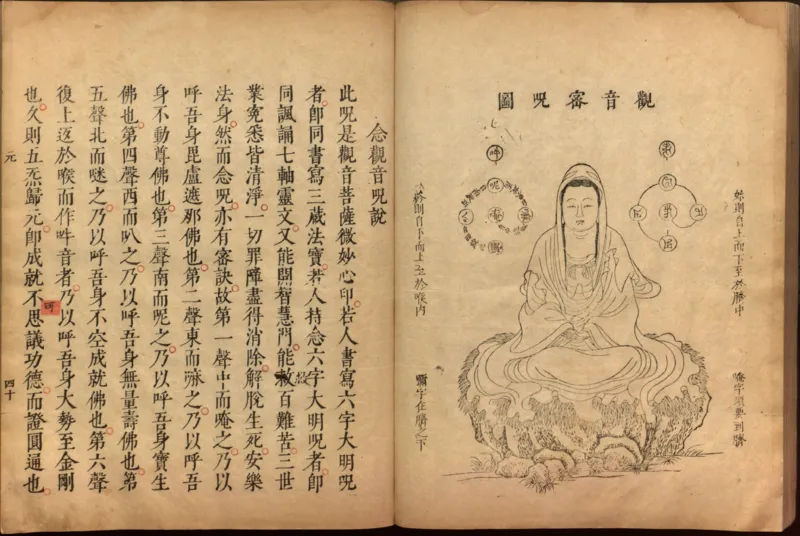 觀音密呪圖
始則自上而下至於臍中
唵字須要到臍
吽
終則自下而上至於喉內
字在臍之下
念觀音呪說
此呪是觀音菩薩微妙心印若人書寫六字大明呪
者卽同書寫三藏法寶若人持念六字大明呪者卽
同諷誦七軸靈文又能開智慧門能救百難苦三世
業寃悉皆清淨一切罪障盡得消除解脫生死安樂
法身然而念呪亦有密訣故第一聲中而唵之乃以
呼吾身毘盧遮那佛也第二聲東而嘛之乃以呼吾
身不動尊佛也第三聲南而呢之乃以呼吾身寶生
佛也第四聲西而叭之乃以呼吾身無量壽佛也第
五聲北而咪之乃以呼吾身不空成就佛也第六聲
復上迓於喉而作吽音者乃以呼吾身大勢至金剛
也久則五炁歸元卽成就不思議功德而證圓通也
救
元
四十